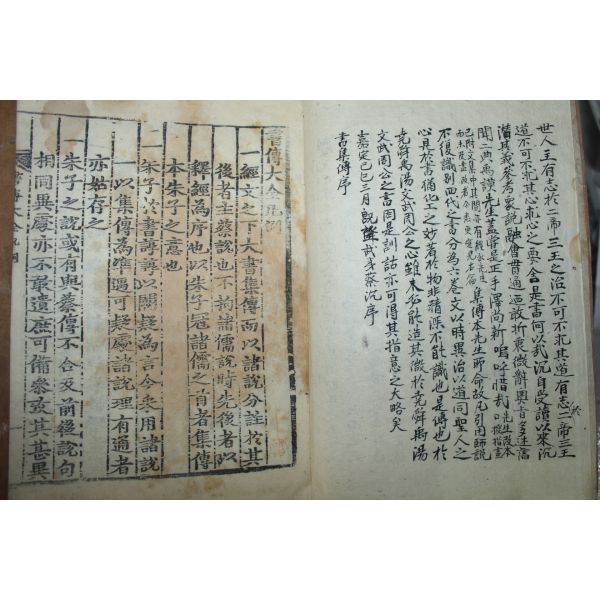 世人主有志於二帝三王之治不可不求其道有志於二帝三王
道不可不求其心求心之要舍是書何以哉沉自受讀以來沉
潛其義參考衆說融會貫通迺敢折衷微辭奧旨多述舊
聞二典禹謨先生盖嘗是正手澤尚新嗚呼惜哉先生改本
已附文集中其間亦有經承先生口授指畫
而未及盡改者今悉更定見本篇集傳本先生所命故凡引用師說
不復識別四代之書分為六卷文以時異治以道同聖人之
心見於書猶化工之妙著於物非精深不能識也是傳也於
堯舜禹湯文武周公之心雖未必能造其微於堯舜禹湯
文武周公之書因是訓詁亦可得其指意之大略矣
嘉定己巳三月既望武夷蔡沉序
書集傳序
書傳大全凡例
一經文之下大書集傳而以諸說分註於其
後者主蔡說也不拘諸儒說時先後者以
釋經為序也以朱子冠諸儒之首者集傳
本朱子之意也
一朱子於書諄諄以闕疑為言今采用諸說
一以集傳為準遇可疑處諸說理有通者
亦姑存之
一朱子之說或有與蔡傳不合及前後說句
相同異處亦不敢遺庶可備參攷其甚異
書傳大全凡例